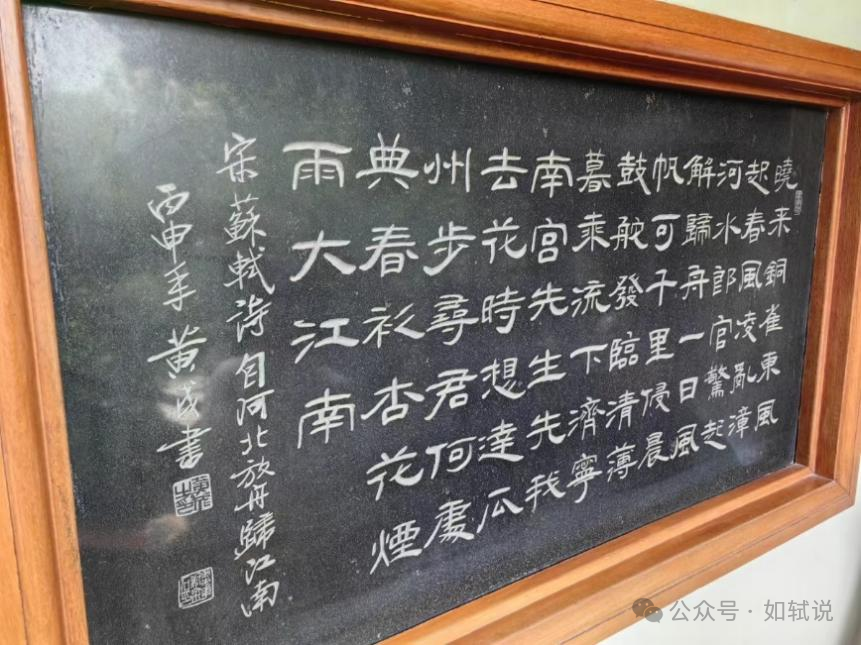 曉来銅雀東風
起春風凌亂漳
河水郎官驚起
解歸舟一日風
帆可千里侵晨
鼓舵發臨清薄
暮乘流下濟寧
南宮先生先我
去花時想達瓜
州步尋君何處
典春衫杏花煙
雨大江南
宋蘇軾詩自河北放舟歸江南
丙申年黄書
公众号·如轼说